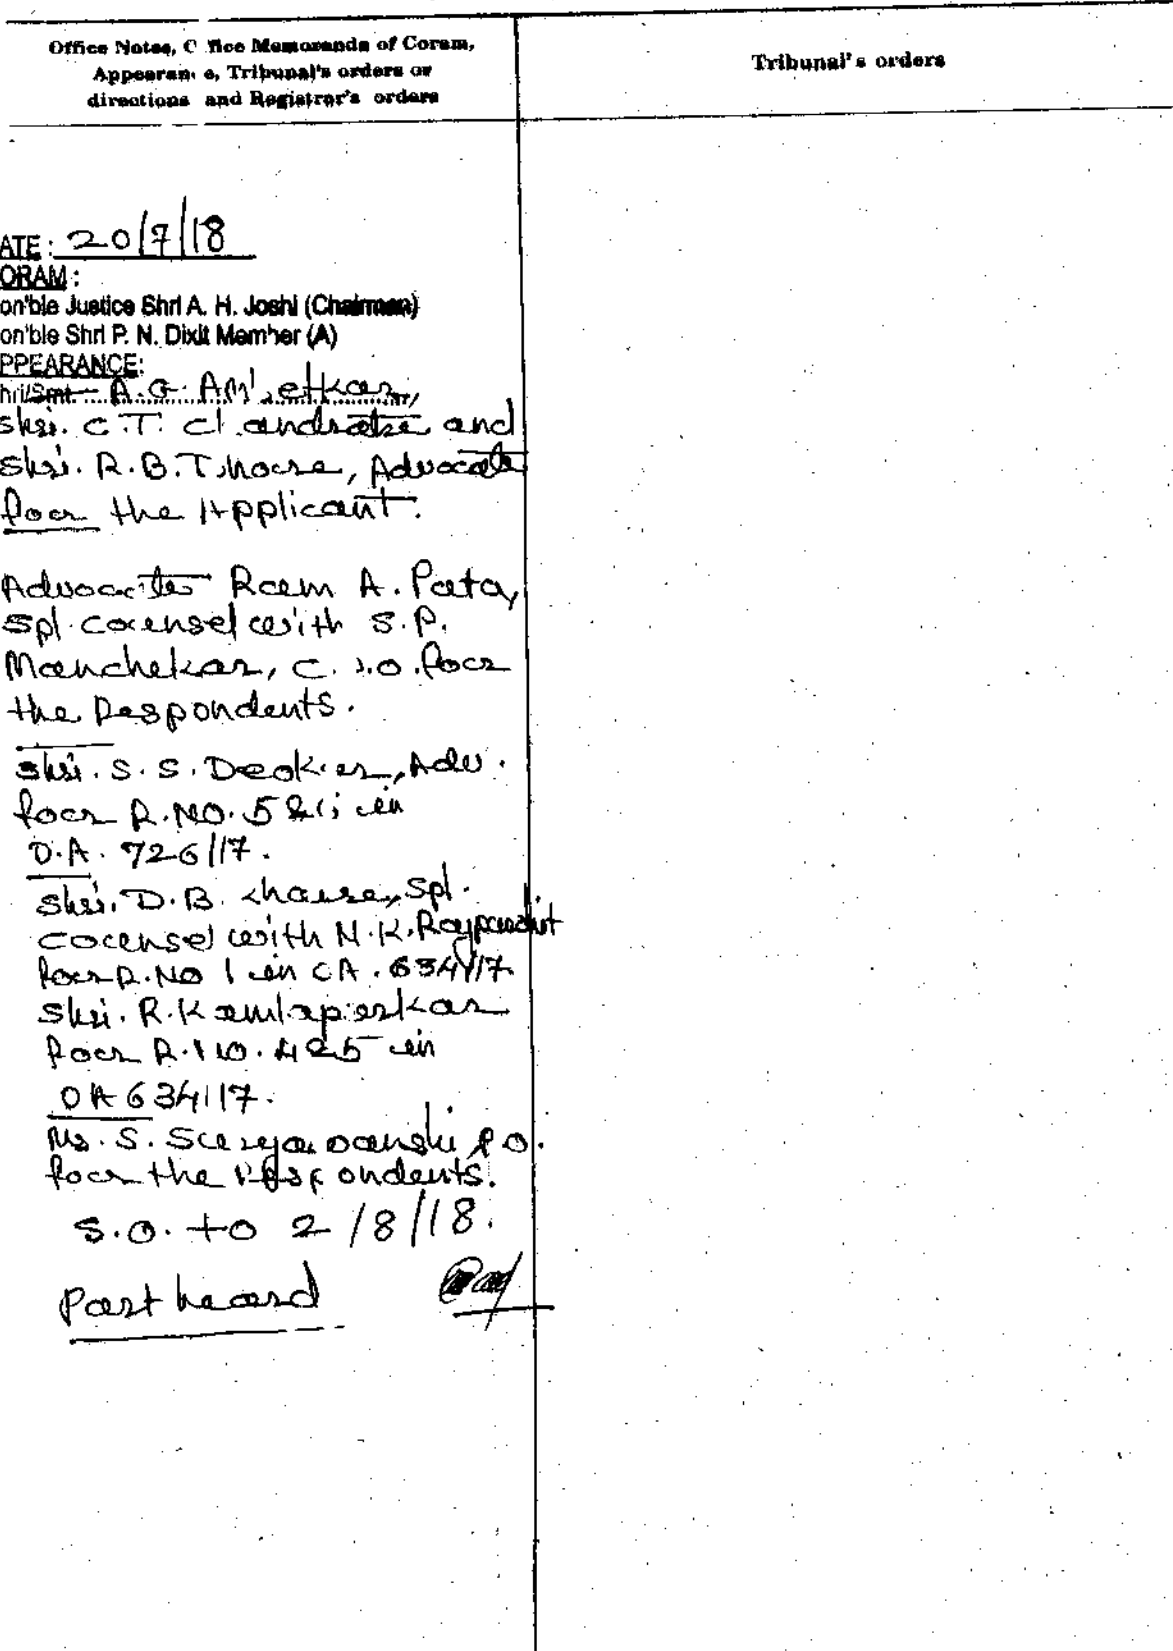 Office Notes, Office Memoranda of Coram,
Appearance, Tribunal's orders or
directions and Registrar's orders
Tribunal's orders
ATE : 20/7/18
ORAM :
on'ble Justice Shri A. H. Joshi (Chairman)
on'ble Shri P. N. Dixit Member (A)
PPEARANCE:
hri/Smt. A. G.
Shri. C. T. Chandratre and
Shri. R. B. Thorre, Advocate
for the Applicant.
Advocate Ram A.
Spl. counsel with S. P.
Manchekar, C. P.O. for
the Respondents.
Shri. S. S. Deokar, Adv.
for R. NO. 5 & in
O.A. 726/17.
Shri. D. B. Khaire, Spl.
counsel with N. K. Rajpurohit
for R. NO 1 in OA. 634/17.
Shri. R. K
for R. NO. 4 & 5 in
OA 634/17.
Ms. S. Suryawanshi P.O.
for the Respondents.
S.O. to 2/8/18.
Part heard